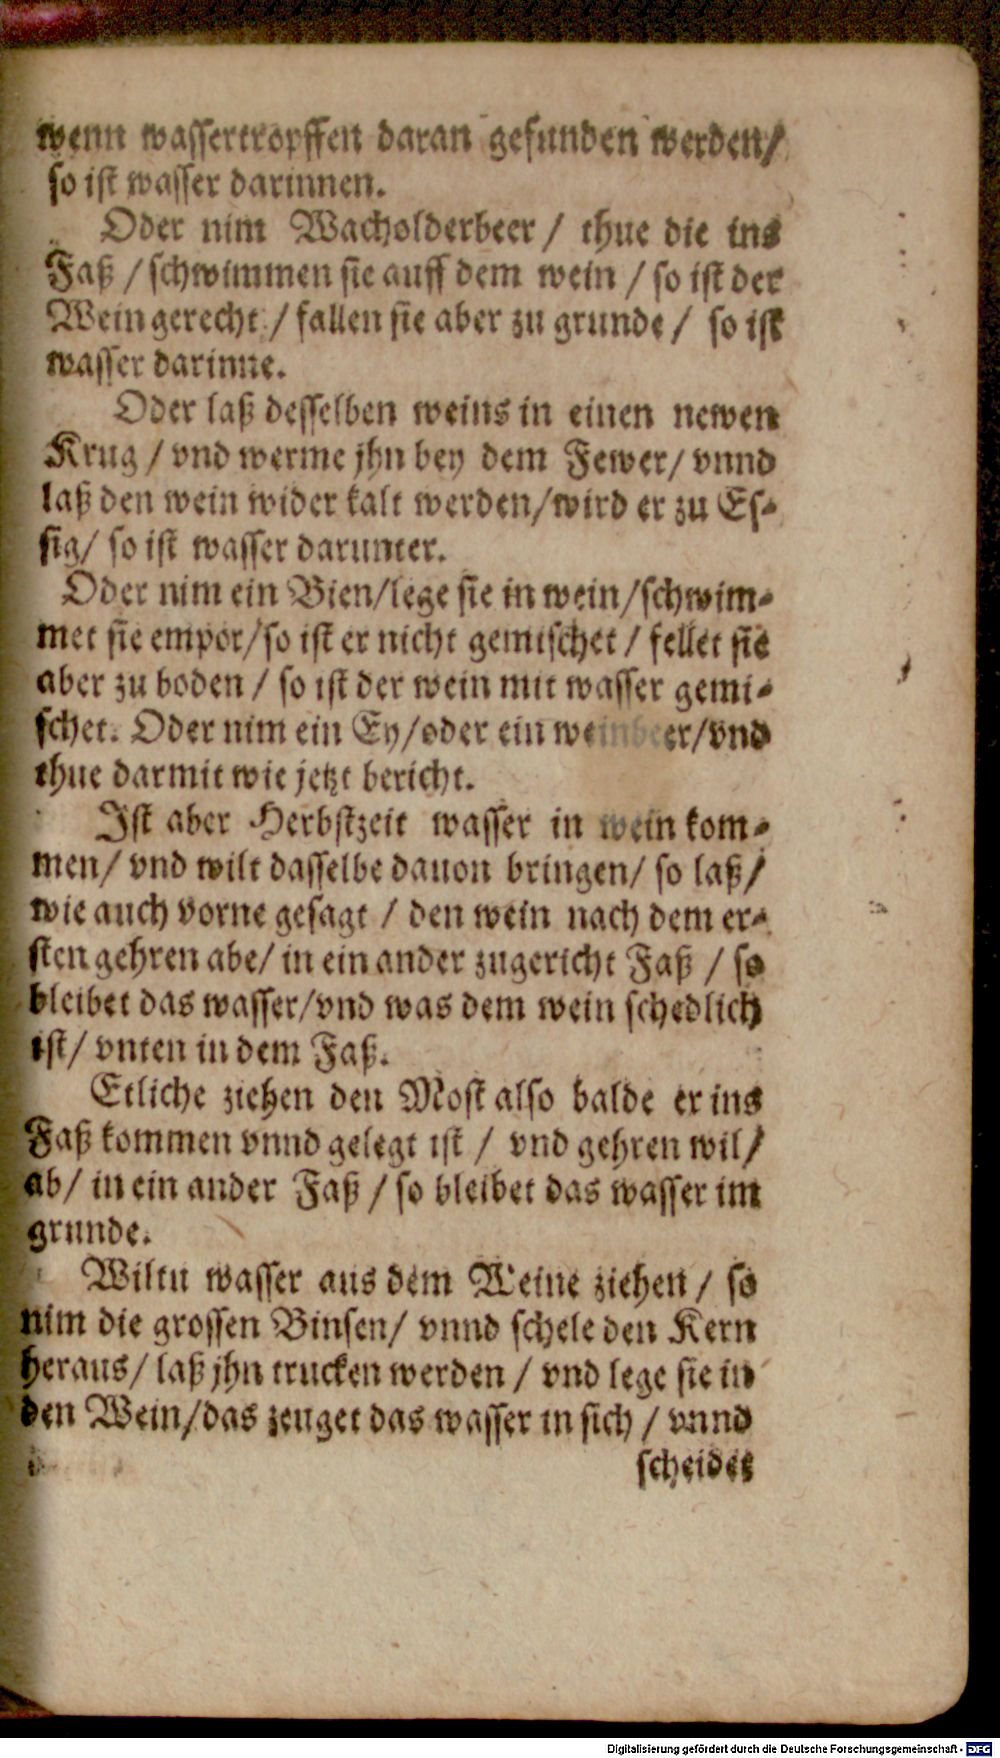 wenn wassertropffen daran gefunden werden/
so ist wasser darinnen.
Oder nim Wacholderbeer / thue die ins
Faß / schwimmen sie auff dem wein / so ist der
Wein gerecht / fallen sie aber zu grunde / so ist
wasser darinne.
Oder laß desselben weins in einen newen
Krug / vnd werme jhn bey dem Fewer/ vnnd
laß den wein wider kalt werden/wird er zu Es-
sig/ so ist wasser darunter.
Oder nim ein Bien/lege sie in wein/schwim-
met sie empor/so ist er nicht gemischet / fellet sie
aber zu boden / so ist der wein mit wasser gemi-
schet. Oder nim ein Ey/oder ein weinbeer/vnd
thue darmit wie jetzt bericht.
Ist aber Herbstzeit wasser in wein kom-
men/ vnd wilt dasselbe dauon bringen/ so laß/
wie auch vorne gesagt / den wein nach dem er-
sten gehren abe/ in ein ander zugericht Faß / so
bleibet das wasser/vnd was dem wein schedlich
ist/ vnten in dem Faß.
Etliche ziehen den Most also balde er ins
Faß kommen vnnd gelegt ist / vnd gehren wil/
ab/ in ein ander Faß / so bleibet das wasser im
grunde.
Wiltu wasser aus dem Weine ziehen / so
nim die grossen Binsen/ vnnd schele den Kern
heraus/ laß jhn trucken werden / vnd lege sie in
den Wein/das zeuget das wasser in sich / vnnd
scheidet
Digitalisierung gefördert durch die Deutsche Forschungsgemeinschaft - DFG